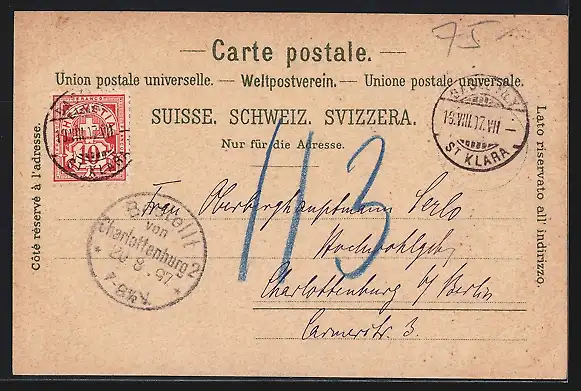 75
— Carte postale. —
Union postale universelle. — Weltpostverein. — Unione postale universale.
SUISSE. SCHWEIZ. SVIZZERA.
Nur für die Adresse.
Côté réservé à l'adresse.
Lato riservato all' indirizzo.
HELVETIA
FRANCO
10
VIII. 17. VII
ST KLARA
VIII. 17. VII –
ST KLARA
Bestellt
von
Charlottenburg 2
8. 97.
113
Frau Oberberghauptmann Serlo
Hochwohlgeb.
Charlottenburg b/ Berlin
Carmerstr. 3.